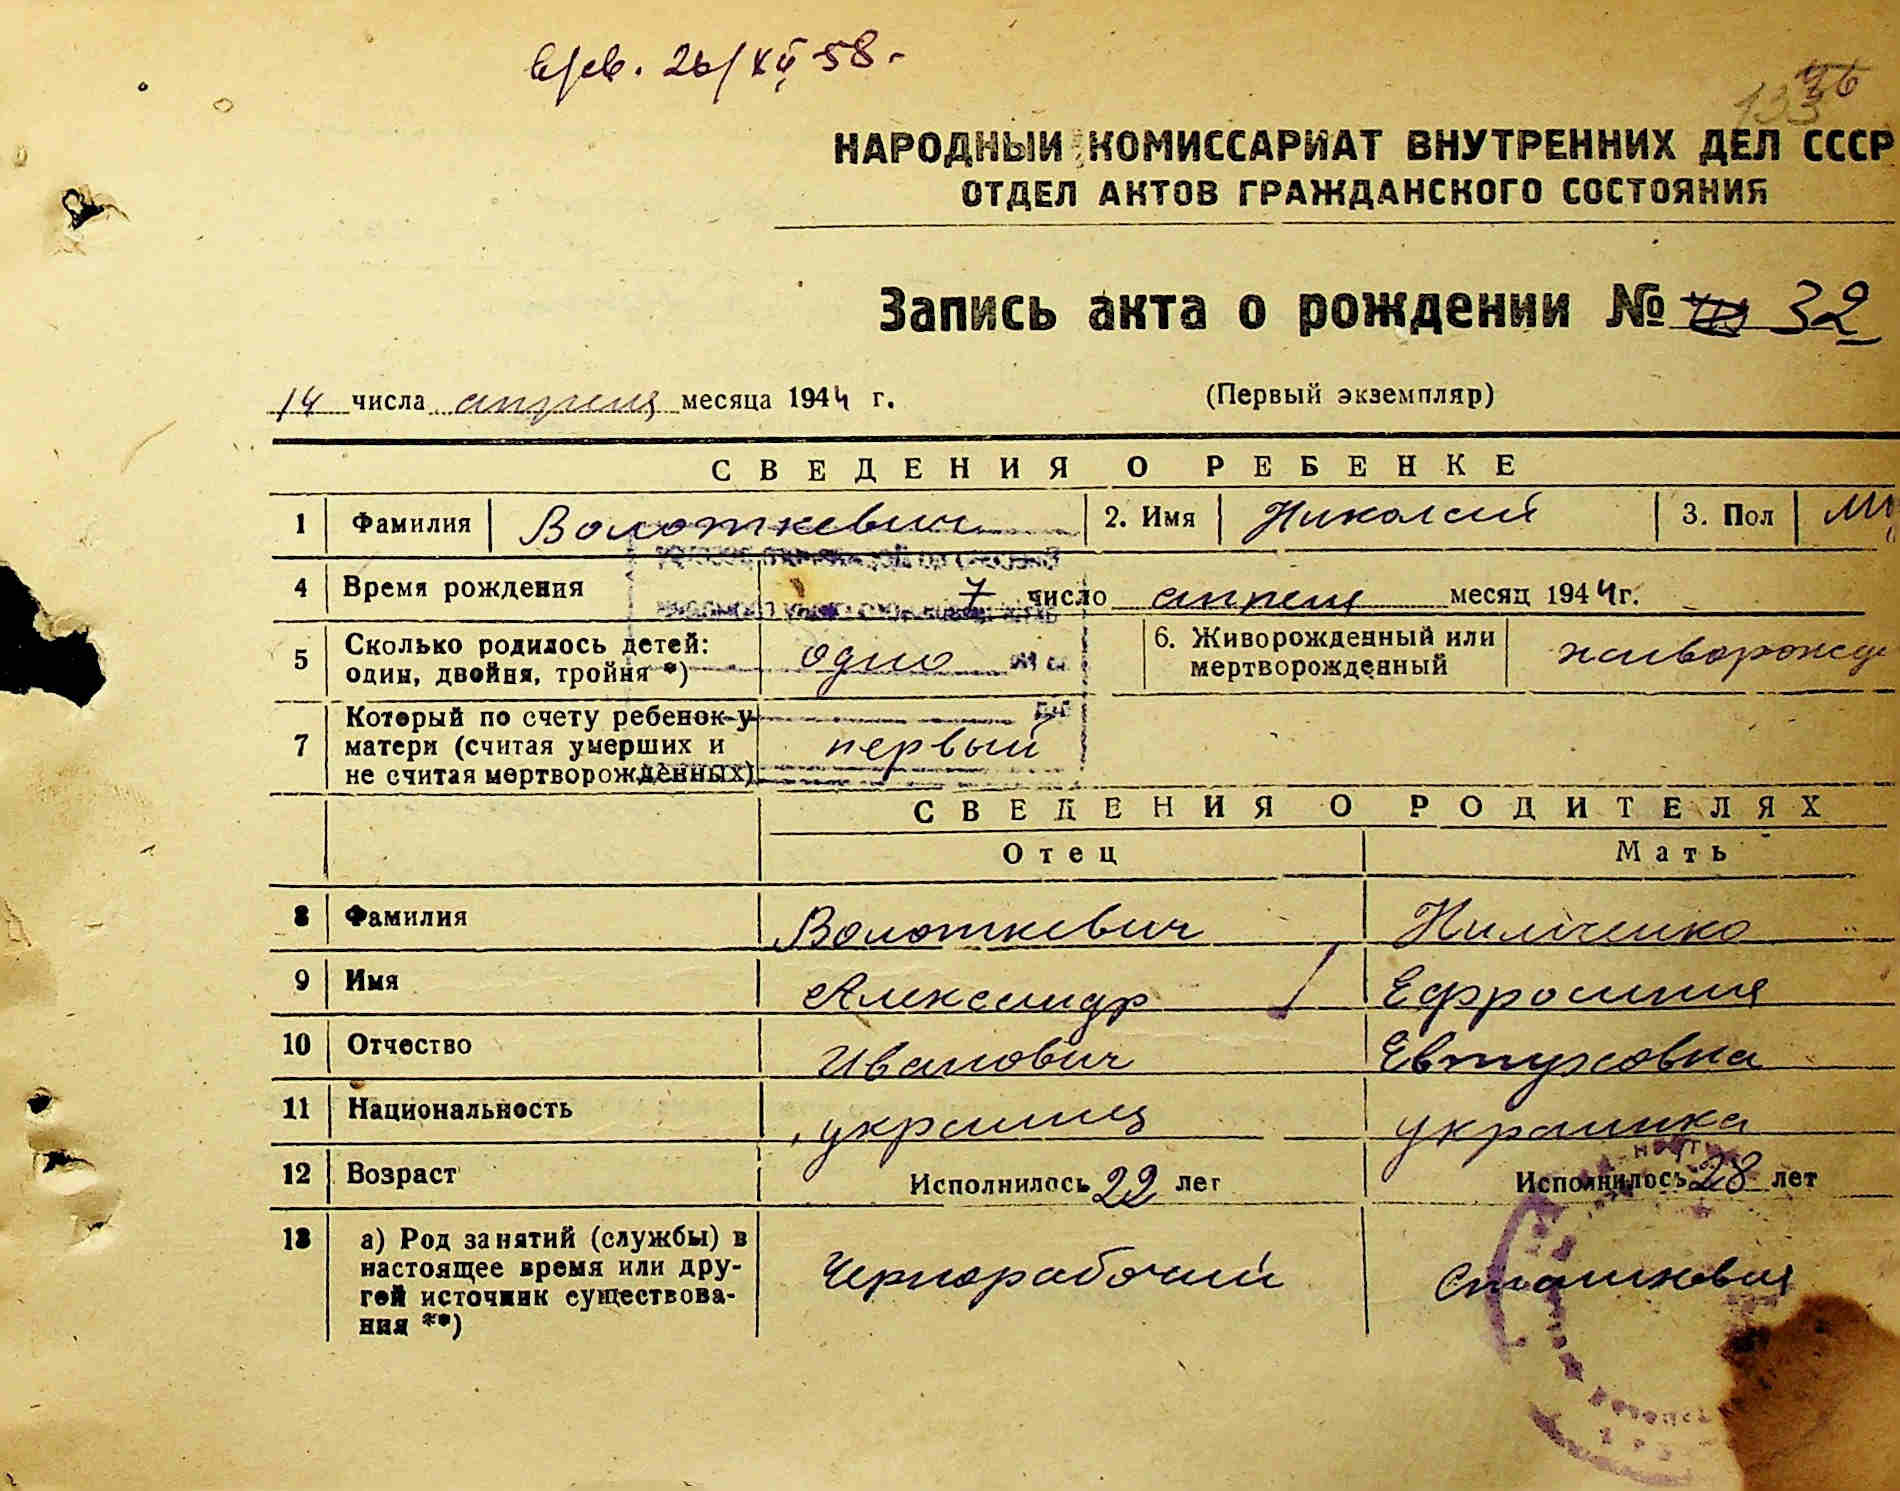 26/XII 58.
НАРОДНЫЙ КОМИССАРИАТ ВНУТРЕННИХ ДЕЛ СССР
ОТДЕЛ АКТОВ ГРАЖДАНСКОГО СОСТОЯНИЯ
Запись акта о рождении № 32
14 числа апреля месяца 1944 г. (Первый экземпляр)
СВЕДЕНИЯ О РЕБЕНКЕ
1 Фамилия Волоткевич 2. Имя Николай 3. Пол
4 Время рождения 7 число апреля месяц 1944 г.
5 Сколько родилось детей: один, двойня, тройня *) одно 6. Живорожденный или мертворожденный живорожде
7 Который по счету ребенок у матери (считая умерших и не считая мертворожденных) первый
СВЕДЕНИЯ О РОДИТЕЛЯХ
Отец Мать
8 Фамилия Волоткевич
9 Имя Александр Ефросиния
10 Отчество Иванович Евтуховна
11 Национальность украинец украинка
12 Возраст Исполнилось 22 лет Исполнилось 28 лет
13 а) Род занятий (службы) в настоящее время или другой источник существования **) Чернорабочий